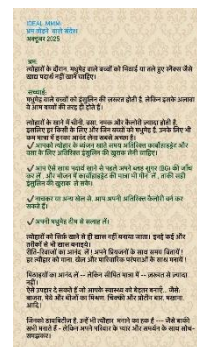 IDEAL MMM
भ्रम तोड़ने वाले संदेश
अक्टूबर 2025
भ्रम:
त्योहारों के दौरान, मधुमेह वाले बच्चों को मिठाई या तले हुए स्नैक्स जैसे
खाद्य पदार्थ नहीं खाने चाहिए।
सच्चाई:
मधुमेह वाले बच्चों को इंसुलिन की ज़रूरत होती है, लेकिन इसके अलावा
वे आम बच्चों की तरह ही होते हैं।
त्योहारों के खाने में चीनी, वसा, नमक और कैलोरी ज़्यादा होती है,
इसलिए हर किसी के लिए और जिन बच्चों को मधुमेह है, उनके लिए भी
कम मात्रा में इनका आनंद लेना सबसे अच्छा है।
✓आपको त्योहार के व्यंजन खाते समय अतिरिक्त कार्बोहाइड्रेट और
वसा के लिए अतिरिक्त इंसुलिन की खुराक लेनी चाहिए।
✓आप ऐसे खाद्य पदार्थ खाने से पहले अपने ब्लड शुगर (BG) की जाँच
कर लें, और भोजन में कार्बोहाइड्रेट की मात्रा भी गिन लें, ताकि सही
इंसुलिन की खुराक ले सकें।
✓नाचकर या अन्य खेल से, आप अपनी अतिरिक्त कैलोरी बर्न कर
सकते हैं।
✓अपनी मधुमेह टीम से सलाह लें।
त्योहारों को सिर्फ खाने से ही खास नहीं बनाया जाता। इनई कई और
तरीकों से भी खास बनाइये।
रीति-रिवाजों का आनंद लें। अपने प्रियजनों के साथ समय बिताएँ
हर त्योहार को गाना, खेल और पारिवारिक परंपराओं के साथ मनायें।
मिठाइयों का आनंद लें – लेकिन सीमित मात्रा में – ज़रूरत से ज़्यादा
नहीं।
ऐसे उपहार दे सकते हैं जो आपके स्वास्थ्य को बेहतर बनाएँ.. जैसे:
बाजरा, मेवे और बीजों का मिश्रण, चिक्की और प्रोटीन बार, मखाना,
आदि।
जिनको डायबिटीज है, उन्हें भी त्योहार मनाने का हक है --- जैसे बाकी
सभी मनाते हैं - लेकिन अपने परिवार के प्यार और समर्थन के साथ सोच-
समझकर।